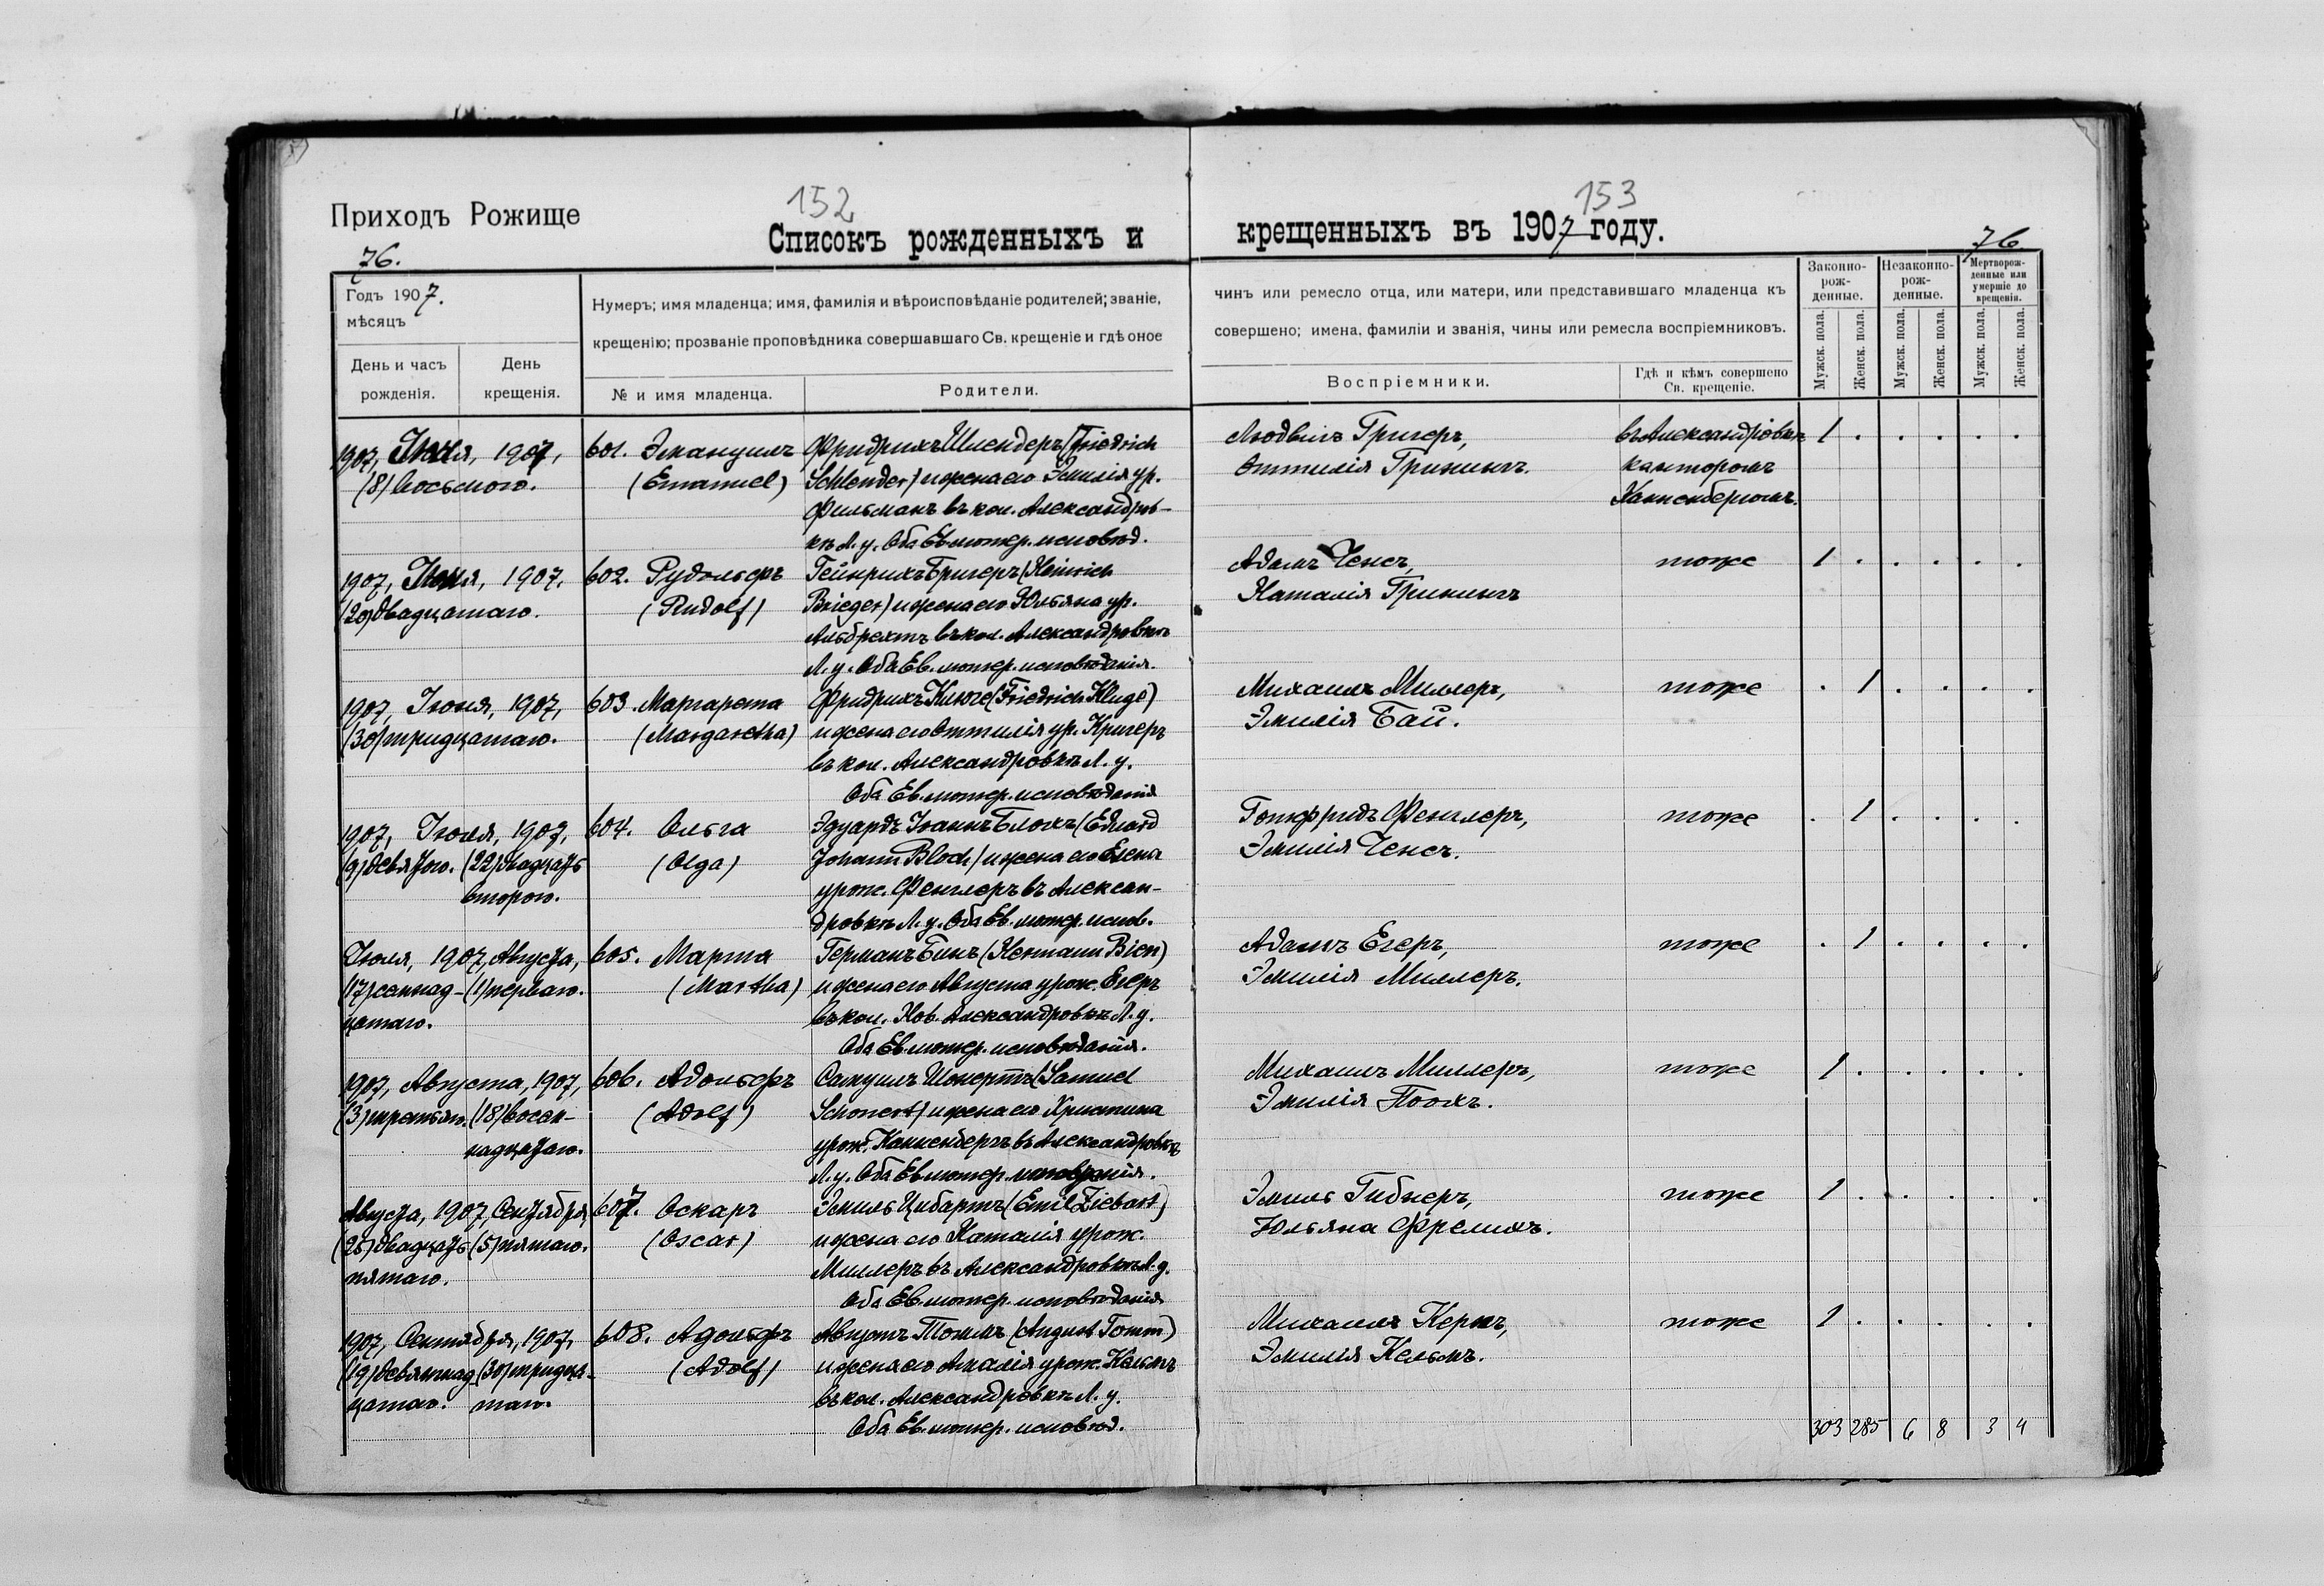 152
153
Приходъ Рожище
Списокъ рожденныхъ и
крещенныхъ въ 1907 году.
76.
76.
Годъ 1907.
мѣсяцъ
День и часъ рожденія.
День крещенія.
Нумеръ; имя младенца; имя, фамилія и вѣроисповѣданіе родителей; званіе,
крещенію; прозваніе проповѣдника совершавшаго Св. крещеніе и гдѣ оное
№ и имя младенца.
Родители.
чинъ или ремесло отца, или матери, или представившаго младенца къ
совершено; имена, фамиліи и званія, чины или ремесла воспріемниковъ.
Воспріемники.
Гдѣ и кѣмъ совершено
Св. крещеніе.
Законно-
рож-
денные.
Незаконно-
рож-
денные.
Мертворож-
денные или
умершіе до
крещенія.
Мужск. пола.
Женск. пола.
Мужск. пола.
Женск. пола.
Мужск. пола.
Женск. пола.
1907, 1907,
(8) восьмого.
601. Эмануилъ
(Emanuel)
Фридрихъ Шлендеръ (Friedrich
Schlender) и жена его Эмилія ур.
Фильманъ въ кол. Александров-
кѣ Л. у. Оба Ев. лютер. исповѣд.
Людвигъ Григеръ,
Оттилія Грининъ.
въ Александровкѣ
канторомъ
Канненбергомъ.
1 . . . . .
1907, 1907,
(20) двадцатаго.
602. Рудольфъ
(Rudolf)
Гейнрихъ Бригеръ (Heinrich
Brieger) и жена его Юльяна ур.
Альбрехтъ въ кол. Александровкѣ
Л. у. Оба Ев. лютер. исповѣданія.
Адамъ Ченсъ,
Наталія Грининъ
тоже
1 . . . . .
1907, Іюня, 1907,
(30) тридцатаго.
603. Маргарета
(Margaretha)
Фридрихъ Клюге (Friedrich Kluge)
и жена его Оттилія ур. Кригеръ
въ кол. Александровкѣ Л. у.
Оба Ев. лютер. исповѣданія
Михаилъ Миллеръ,
Эмилія Бай.
тоже
. 1 . . . .
1907, Іюля, 1907,
(9) девятого. (22) двадцать
второго.
604. Ольга
(Olga)
Эдуардъ Іоаннъ Блохъ (Eduard
Johann Bloch) и жена его Елена
урож. Фенглеръ въ Алексан-
дровкѣ Л. у. Оба Ев. лютер. испов.
Готфридъ Фенглеръ,
Эмилія Ченсъ.
тоже
. 1 . . . .
Іюля, 1907, Августа,
(17) семнад- (1) перваго.
цатаго.
605. Марта
(Martha)
Германъ Бинъ (Hermann Bien)
и жена его Августа урож. Егеръ
въ кол. Нов. Александровкѣ Л. у.
Оба Ев. лютер. исповѣданія.
Адамъ Егеръ,
Эмилія Миллеръ.
тоже
. 1 . . . .
1907, Августа, 1907,
(3) третьяго. (18) восем-
надцатаго.
606. Адольфъ
(Adolf)
Самуилъ Шонертъ (Samuel
Schonert) и жена его Христина
урож. Канненбергъ въ Александровкѣ
Л. у. Оба Ев. лютер. исповѣданія.
Михаилъ Миллеръ,
Эмилія
тоже
1 . . . . .
Августа, 1907, Сентября,
(25) двадцать (5) пятаго.
пятаго.
607. Оскаръ
(Oscar)
Эмиль Цибартъ (Emil Ziebart)
и жена его Наталія урож.
Миллеръ въ Александровкѣ Л. у.
Оба Ев. лютер. исповѣданія
Эмиль Гибнеръ,
Юльяна Фрелихъ.
тоже
1 . . . . .
1907, Сентября, 1907,
(19) девятнад- (30) тридца-
цатаго. таго.
608. Адольфъ
(Adolf)
Августъ Томмъ (August Tomm)
и жена его Амалія урож. Кельмъ
въ кол. Александровкѣ Л. у.
Оба Ев. лютер. исповѣд.
Михаилъ Кернъ,
Эмилія Кельмъ.
тоже
1 . . . . .
303 285 6 8 3 4